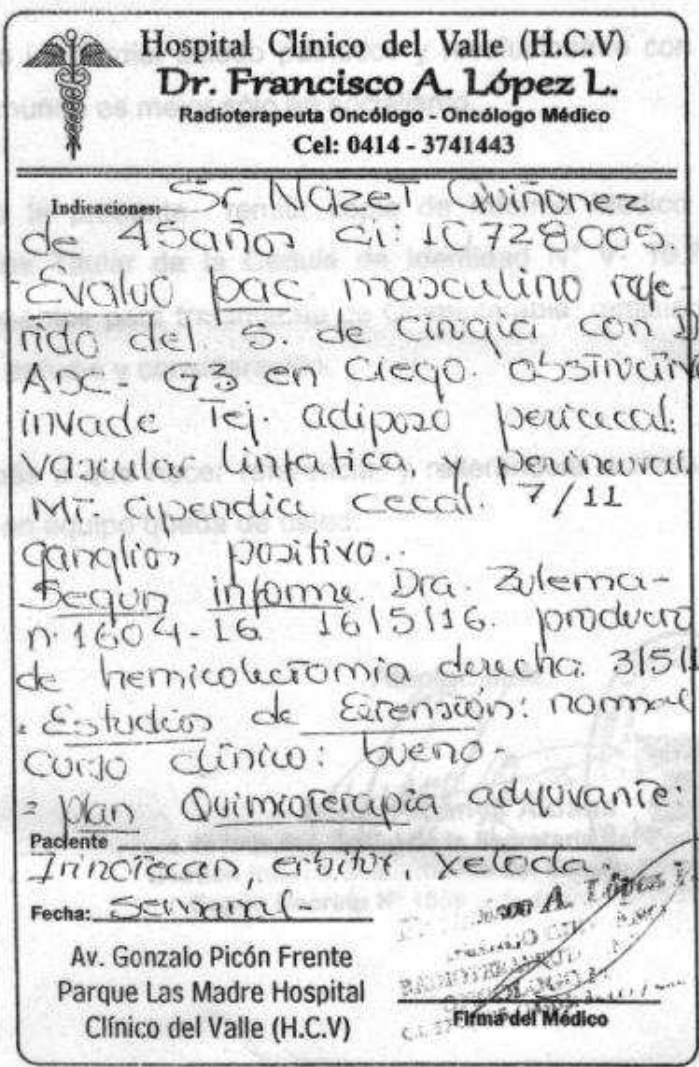 Hospital Clínico del Valle (H.C.V)
Dr. Francisco A. López L.
Radioterapeuta Oncólogo - Oncólogo Médico
Cel: 0414 - 3741443
Indicaciones: Sr Nazet Quiñonez
de 45años CI: 10728005
- Evaluo pac masculino refe-
rido del. S. de cirugia con D
Adc - G3 en ciego. obstructivo
invade Tej. adiposo pericecal.
Vascular linfatica, y perineural
MT. apendice cecal. 7/11
ganglios positivo..
Segun informe. Dra. Zulema-
n. 1604-16 16/5/16. producto
de hemicolectomia derecha. 3/5/1
. Estudios de Extensión: normal
Curso clinico: bueno-
= plan Quimioterapia adyuvante:
Paciente
Irinotecan, erbitux, xeloda
Fecha: Semanal-
Av. Gonzalo Picón Frente
Parque Las Madre Hospital
Clínico del Valle (H.C.V)
A. López
Firma del Médico